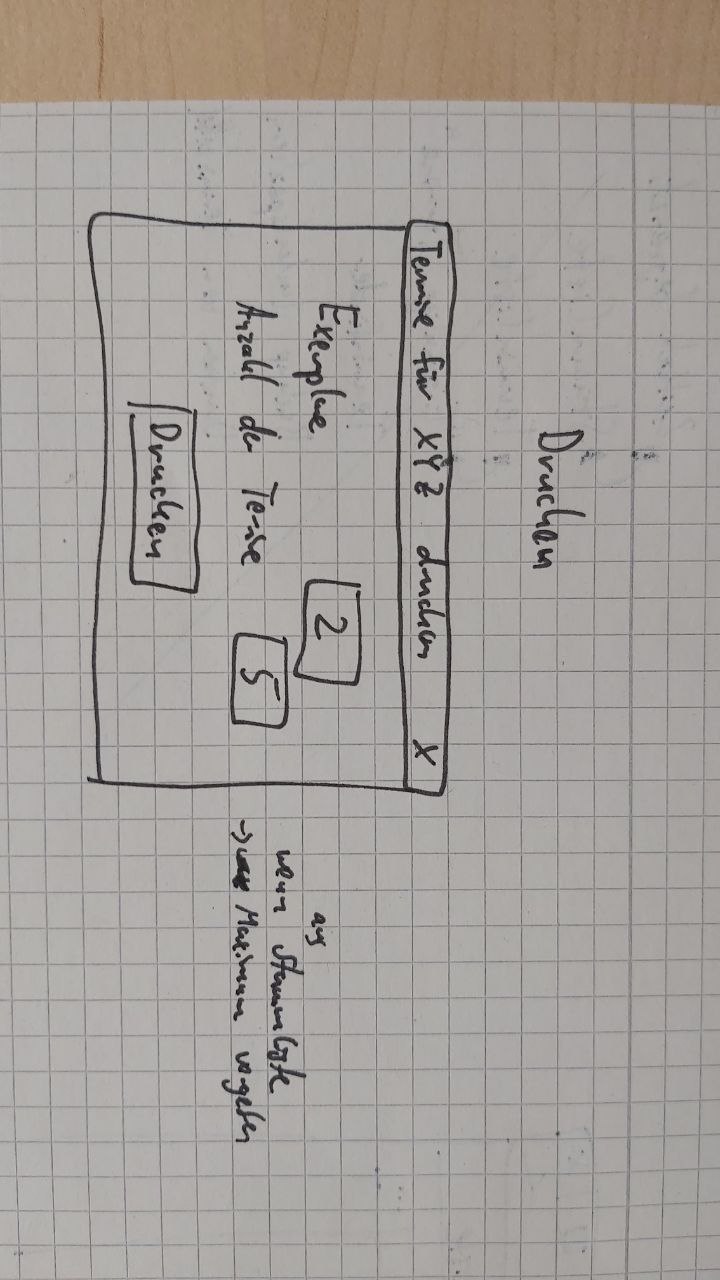 Drucken
Termine für XYZ drucken X
Exemplare 2
Anzahl der Termine 5
Drucken
aus
wenn
→ Maximum vorgeben